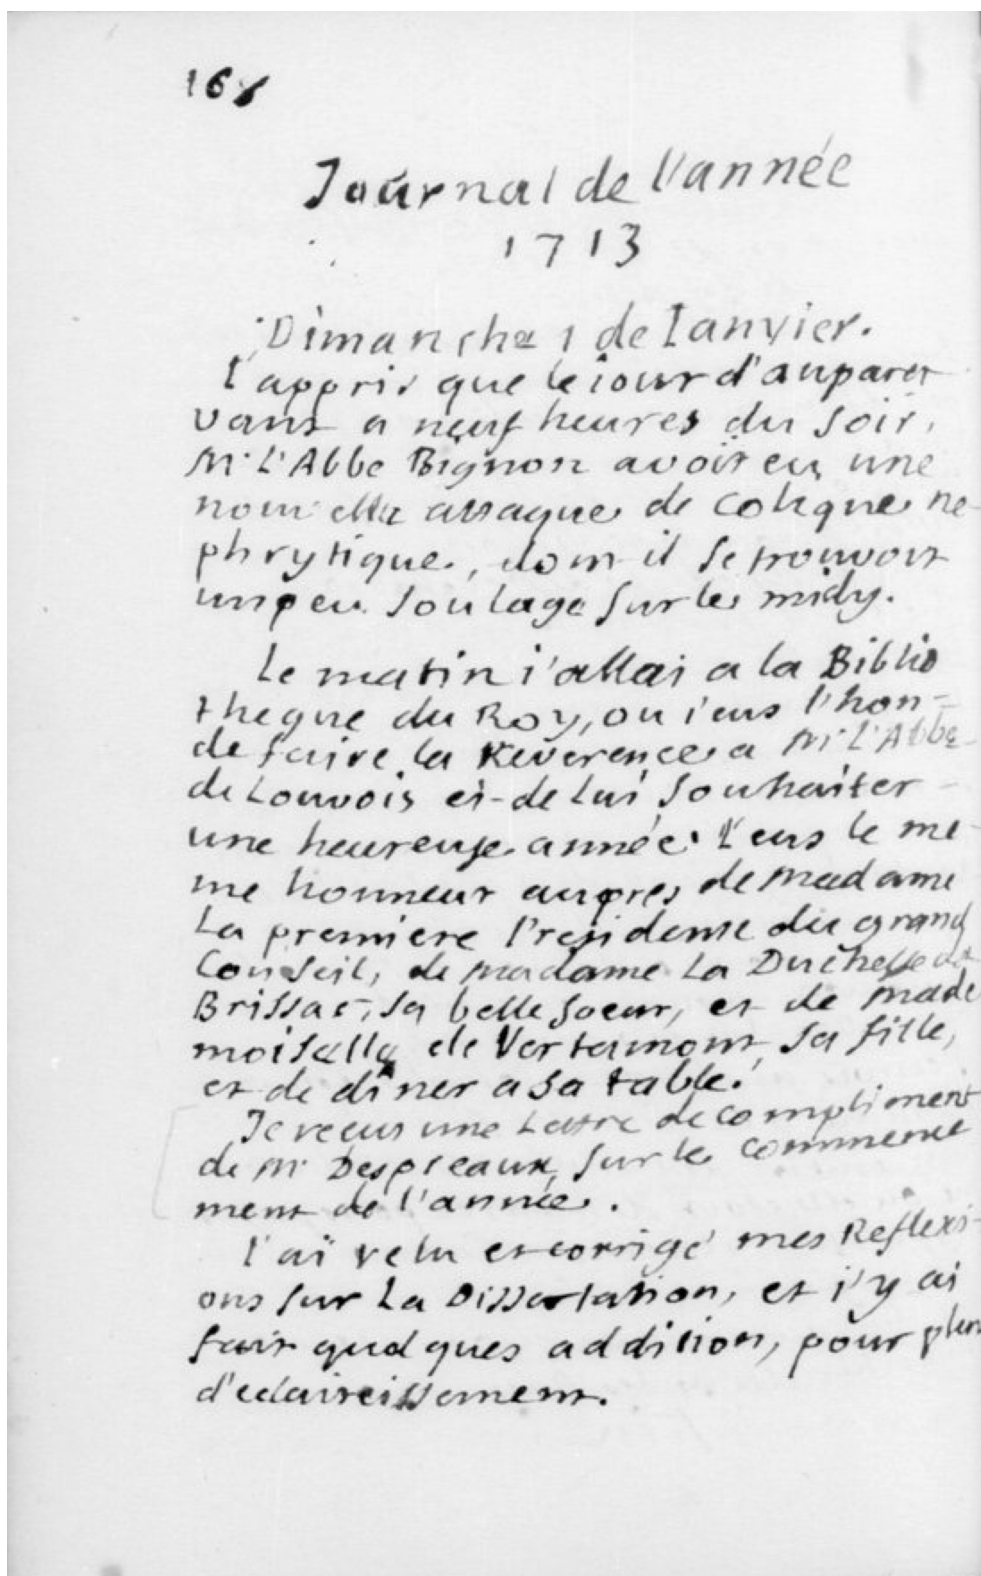 168
Journal de l'année
1713
Dimanche 1 de Ianvier.
I'appris que le iour d'aupara
vant a neuf heures du soir,
Mr L'Abbe Bignon avoit eu une
nouvelle attaque de Colique ne
phrytique, dont il se trouvoit
un peu soulagé sur le midy.
Le matin i'allai a la Biblio
theque du Roy, ou i'eus l'hon-
de faire la Reverence a Mr L'Abbe
de Louvois et de lui souhaiter
une heureuse année. I'eus le me
me honneur aupres de Madame
La premiere Presidente du grand
Conseil, de Madame La Duchesse de
Brissac, sa belle soeur, et de Made
moiselle de Vertamont, sa fille,
et de dîner a sa table.
Je receus une Lettre de compliment
de Mr Despreaux, sur le commence
ment de l'année.
I'ai relu et corrigé mes Reflexi-
ons sur La Dissertation, et j'y ai
fait quelques addition, pour plus
d'eclaircissement.